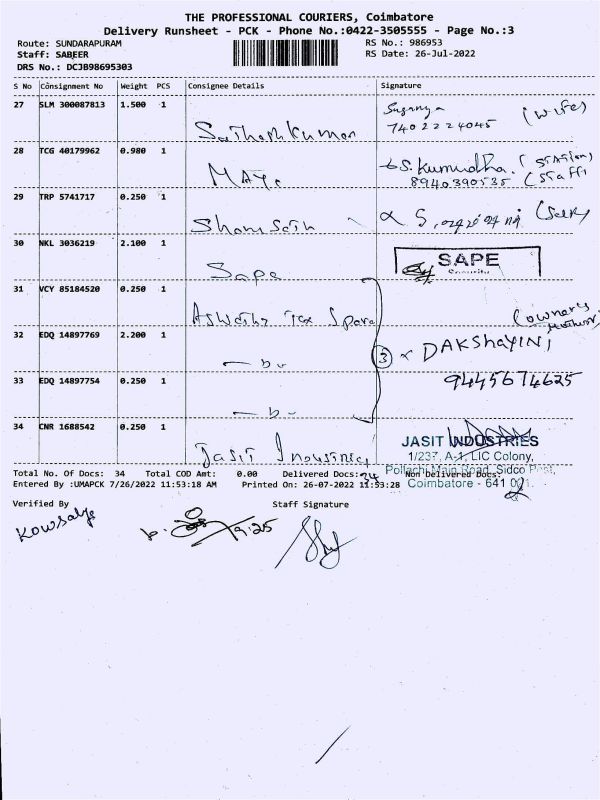 THE PROFESSIONAL COURIERS, Coimbatore
Delivery Runsheet - PCK - Phone No.:0422-3505555 - Page No.:3
Route: SUNDARAPURAM
RS No.: 986953
Staff: SABEER
RS Date: 26-Jul-2022
DRS No.: DCJB98695303
S No Consignment No Weight PCS Consignee Details Signature
27 SLM 300087813 1.500 1 Sathesh Kumar Suganya (wife)
7402224045
28 TCG 40179962 0.980 1 S. Kumudha. (Station)
8940390535 (Staff)
29 TRP 5741717 0.250 1 (Self)
30 NKL 3036219 2.100 1 Sape SAPE
Security
31 VCY 85184520 0.250 1 Tex (owner's
32 EDQ 14897769 2.200 1 3 x DAKSHAYINI
33 EDQ 14897754 0.250 1 9445674625
34 CNR 1688542 0.250 1 Jasit JASIT INDUSTRIES
1/237, A-1, LIC Colony,
Pollachi Main Road, Sidco Post,
Coimbatore - 641 021.
Total No. Of Docs: 34 Total COD Amt: 0.00 Delivered Docs: 34 Non Delivered Docs:
Entered By :UMAPCK 7/26/2022 11:53:18 AM Printed On: 26-07-2022 11:53:28
Verified By Staff Signature
Kowsalya 9:25